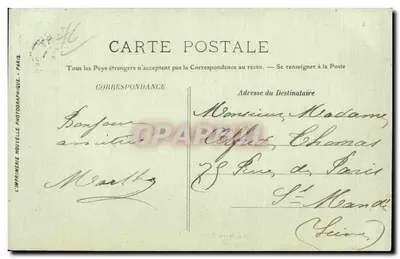 CARTE POSTALE
Tous les Pays étrangers n'acceptent pas la Correspondance au recto. — Se renseigner à la Poste
CORRESPONDANCE
Adresse du Destinataire
Bonjour
amitiés
Marthe
Monsieur Madame
Thomas
75 Rue de Paris
St Mandé
(Seine)
L'IMPRIMERIE NOUVELLE PHOTOGRAPHIQUE. - PARIS